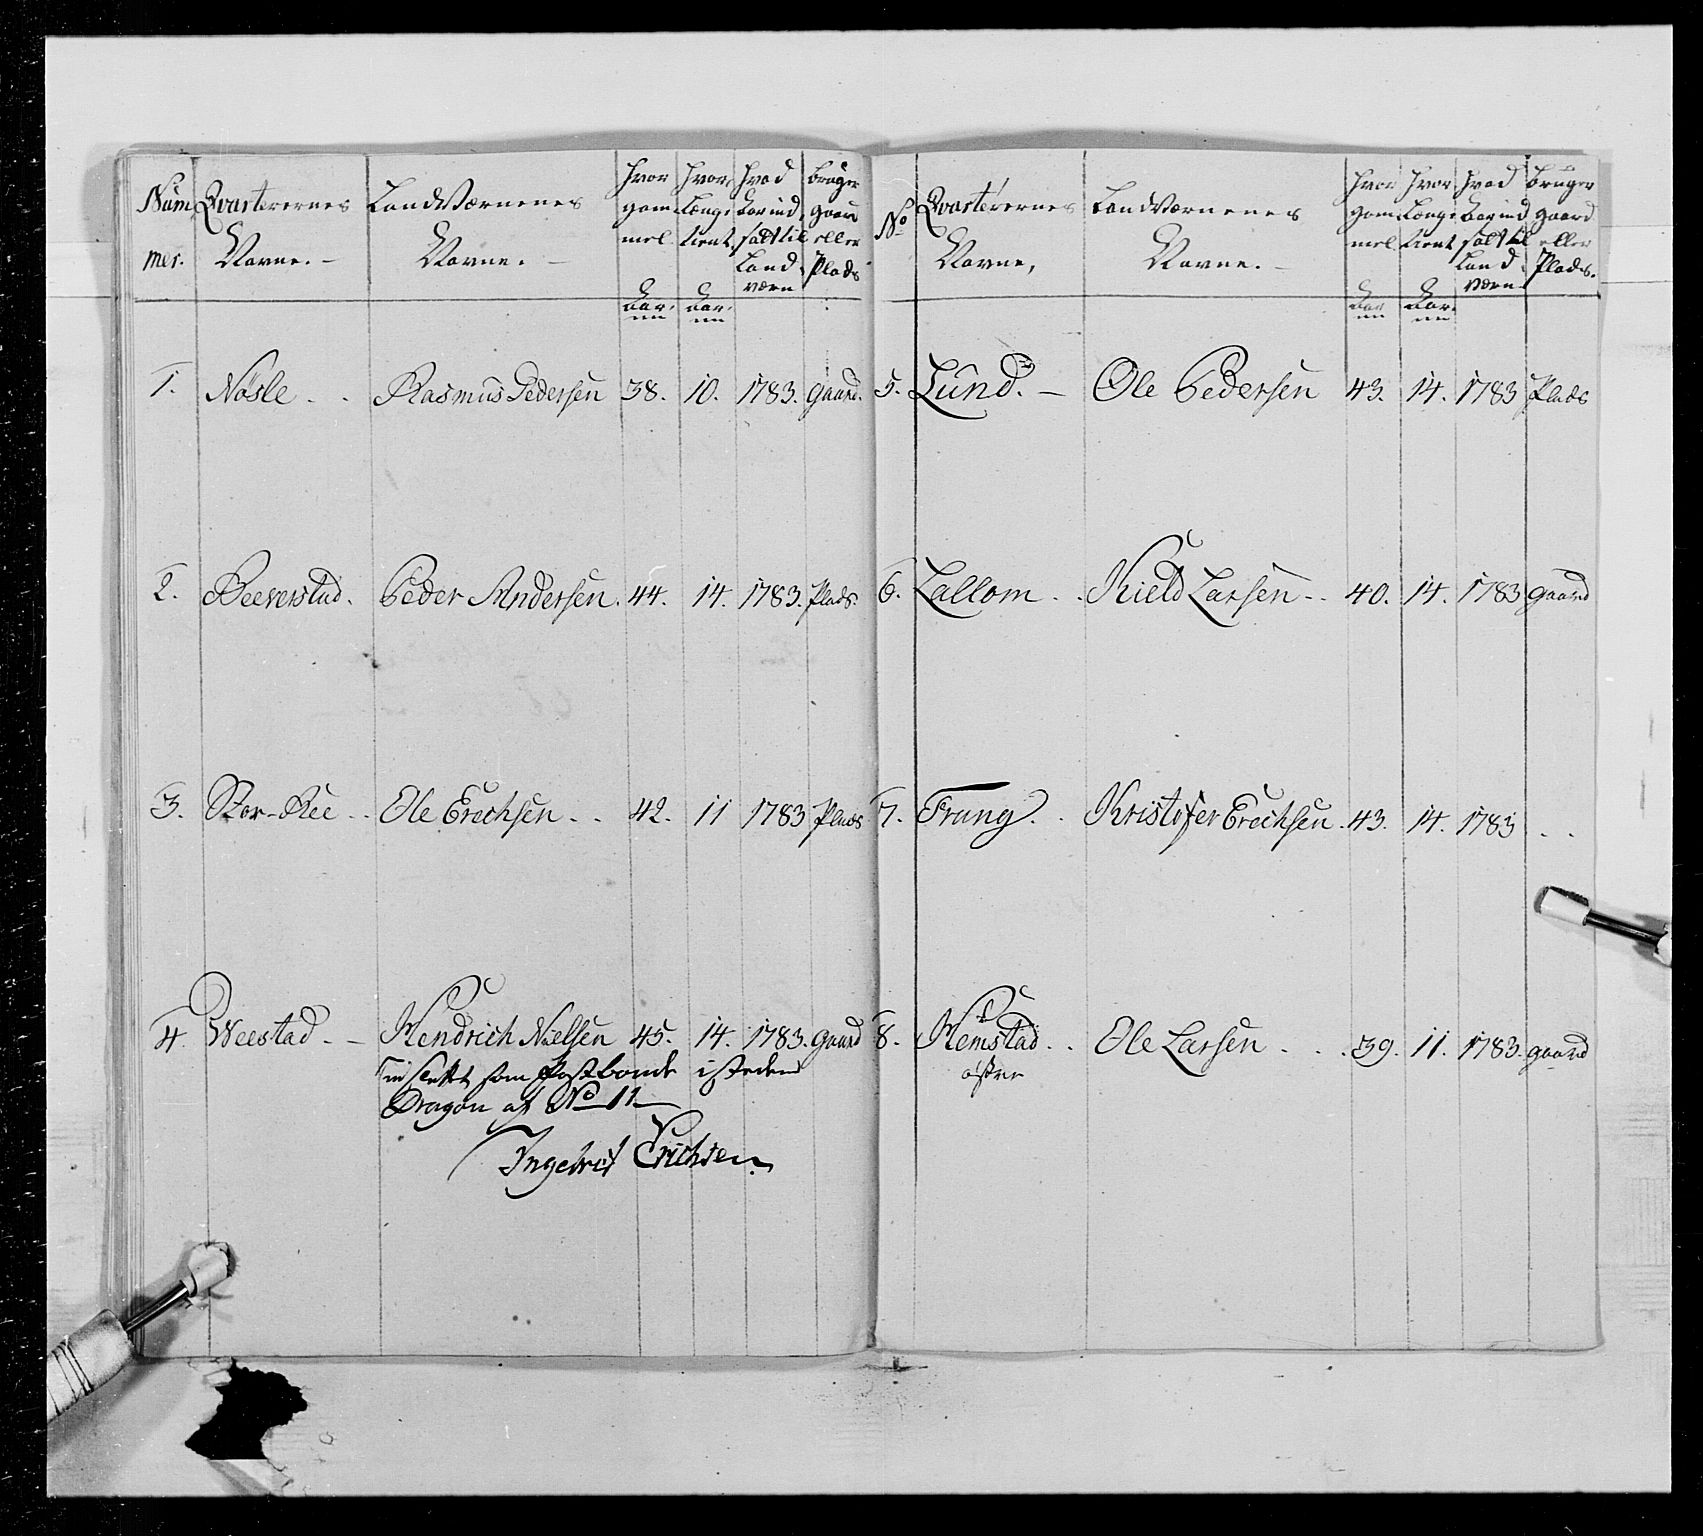 Num
mer.
Qvarterernes
Navne. -
Landværnenes
Navne. -
hvor
gam
mel.
Aar.
hvor
længe
tient
Aar.
hvad
Aar ind
sadt til
Land
værn
bruger
gaard
eller
Plads
1. Nøsle . . Rasmus Pedersen 38. 10. 1783. gaard.
2. Beeverstad. Peder Andersen. 44. 14. 1783. Plads.
3. Stor-Ree . . Ole Erechsen . . 42. 11 1783 Plads
4. Weestad . - Hendrich Nielsen 45. 14. 1783. gaard
som Postbonde isteden
Dragon af No 11
Ingebrit Erichsen.
No
Qvarterernes
Navne,
Landværnenes
Navne. -
hvor
gam
mel
Aar
hvor
længe
tient
Aar.
hvad
Aar ind
sadt til
Land
værn
bruger
gaard
eller
Plads.
5. Lund. - Ole Pedersen 43. 14. 1783 Plads
6. Lallom . . Kield Larsen - . 40. 14. 1783 gaard
7. Frang . . Kristofer Erechsen . 43. 14. 1783 . .
8. Hemstad . . Ole Larsen . . . 39. 11. 1783. gaard
østre